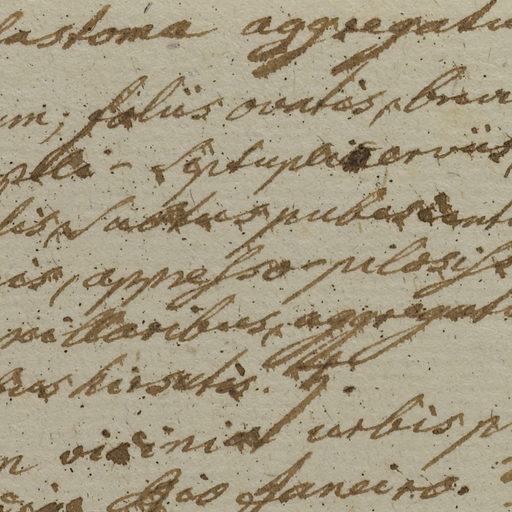 lastoma aggregatu
um; foliis ovatis, brev
pli- septuplinerviis,
lis, subtus pubescenti
is, appresso-pilosis
xillaribus, aggregati
us hirsutis. ♄.
n vicinia urbis p
Rio Janeiro.